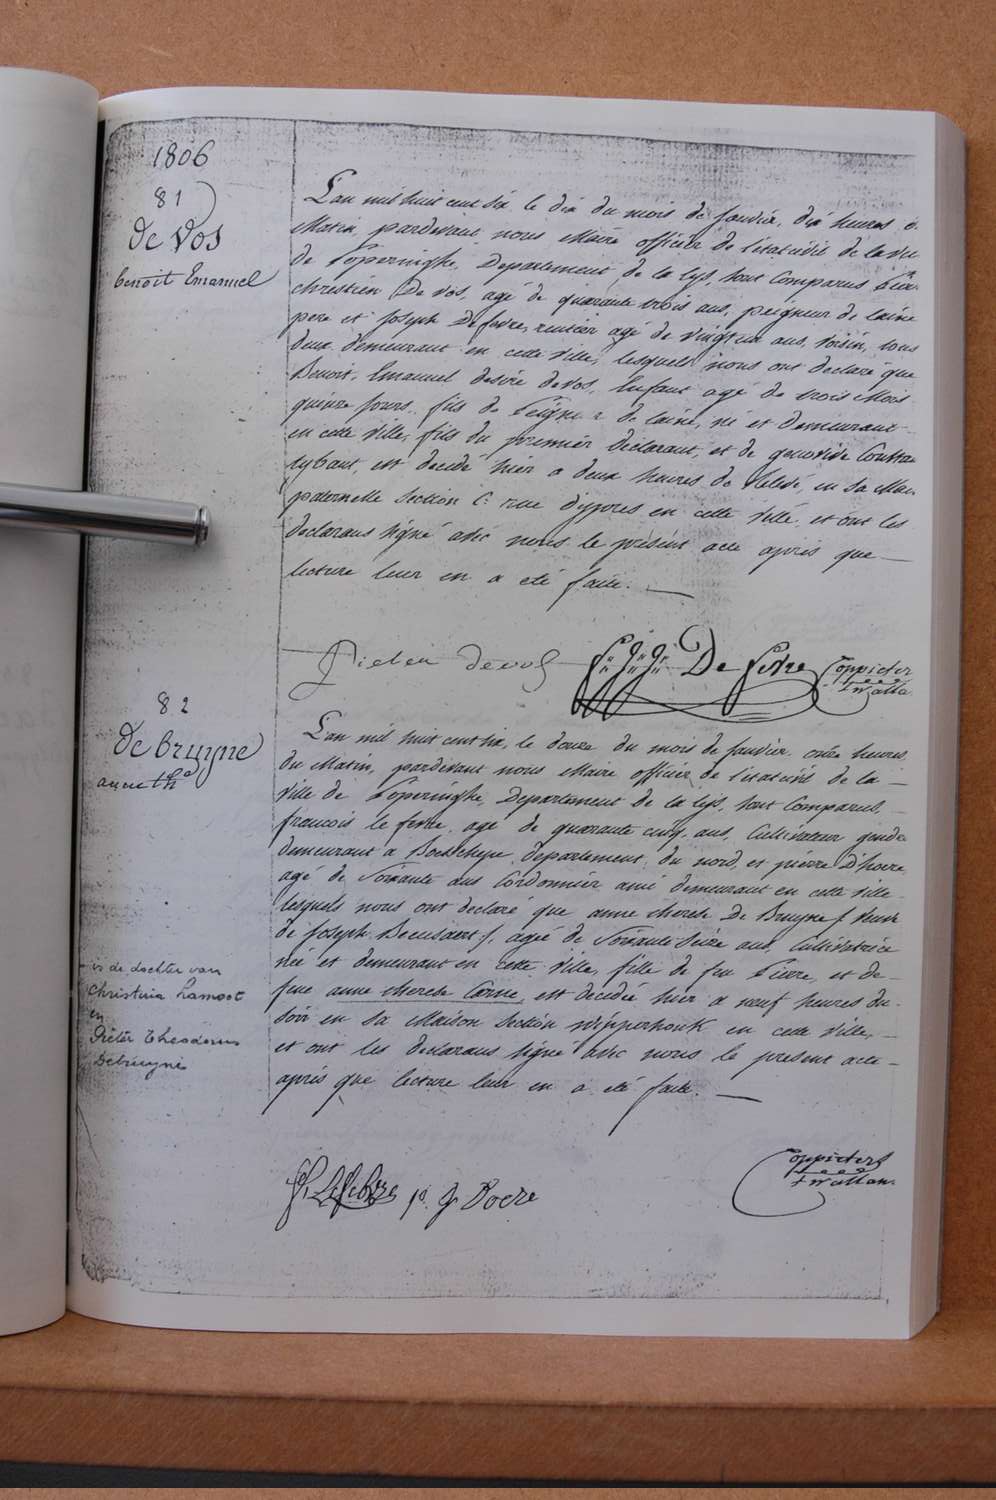 1806
81
de Vos
benoit Emanuel
L'an mil huit cent six le dix du mois de Janvier, dix heures
Matin, pardevant nous Maire officier de l'état civil de la vil
de Poperinghe, Departement de la Lys, sont Comparus
christien De Vos, agé de quarante trois ans, peigneur de laine
pere et Joseph Defevre, rentier agé de vingt ans, voisin, tous
deux demeurant en cette ville, lesquels nous ont declaré que
Benoit Emanuel desiré devos, Enfant agé de trois Mois
quinze jours, fils de Peigneur de laine, né et demeurant
en cette Ville, fils du premier declarant, et de genovive
est decedé hier a deux heures de Relevé, en sa Mai
paternelle Section C. rue d'ypres en cette Ville. et ont les
declarans signé avec nous le présent acte après que
lecture leur en a eté faite.
Pieter devos De Fevre
82
de bruyne
anne thé
L'an mil huit cent six, le douze du mois de Janvier, onze heures
du Matin, pardevant nous Maire officier de l'état civil de la
Ville de Poperinghe, Departement de la Lys, sont Comparus,
francois le fevre, agé de quarante cinq ans, Cultivateur
demeurant a Boeschepe, departement du nord, et pierre D'hoere
agé de Soixante ans Cordonnier ami demeurant en cette ville
lesquels nous ont declaré que anne therese De Bruyne / Veuve
de Joseph /, agée de Soixante Seize ans, Cultivatrice
née et demeurant en cette Ville, fille de feu Pierre et de
feue anne therese Carne, est decedée hier a neuf heures du
Soir en sa Maison Section Wipperhouk en cette Ville,
et ont les declarans signé avec nous le present acte
après que lecture leur en a été faite.
is de dochter van
Christina Lamoot
en
Pieter Theodorus
Debruyne